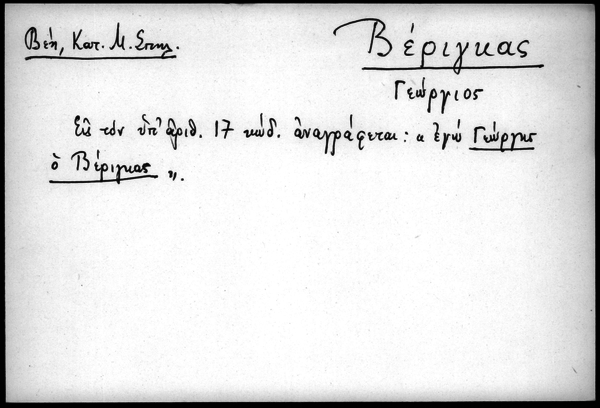 Βέη, Κατ. Μ. Σπηλ.
Βέριγκας
Γεώργιος
Εἰς τὸν ὑπ' ἀριθ. 17 κώδ. ἀναγράφεται: « ἐγώ Γεώργης
ὁ Βέριγκας ».